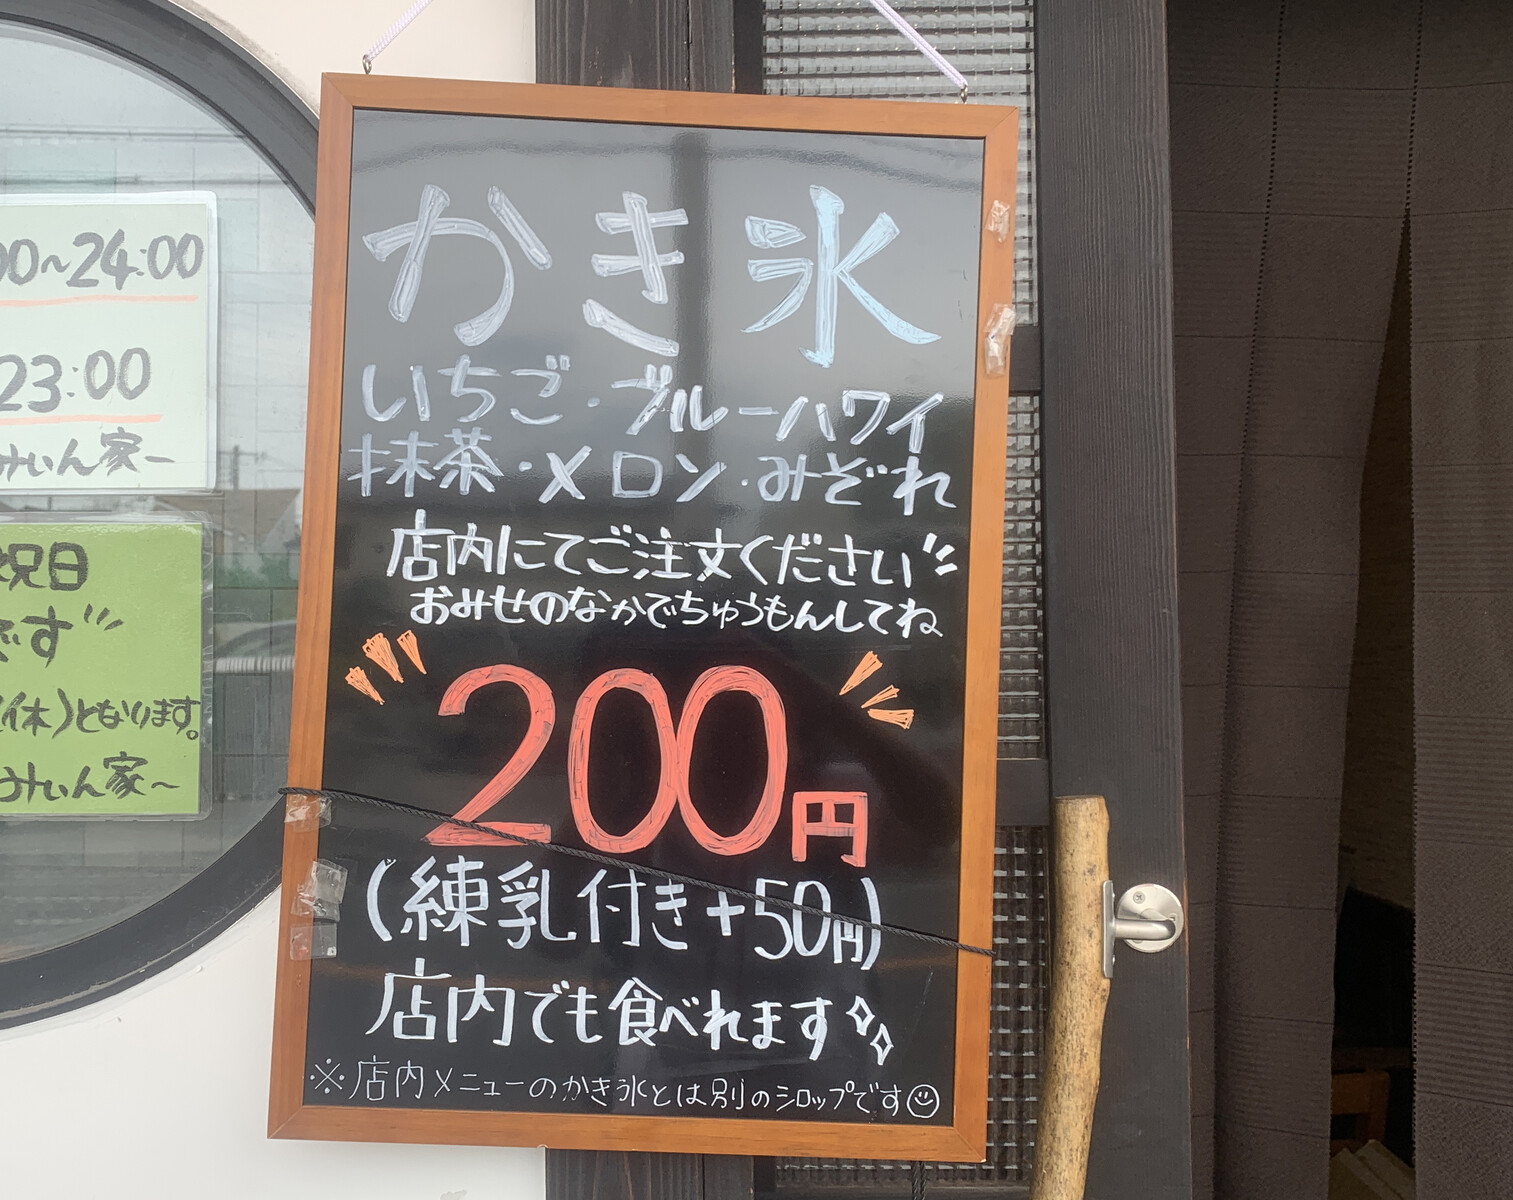 00~24:00
23:00
みぃん家~
祝日
です
休)となります。
みぃん家~
かき氷
いちご・ブルーハワイ
抹茶・メロン・みぞれ
店内にてご注文ください
おみせのなかでちゅうもんしてね
200円
(練乳付き+50円)
店内でも食べれます
※店内メニューのかき氷とは別のシロップです